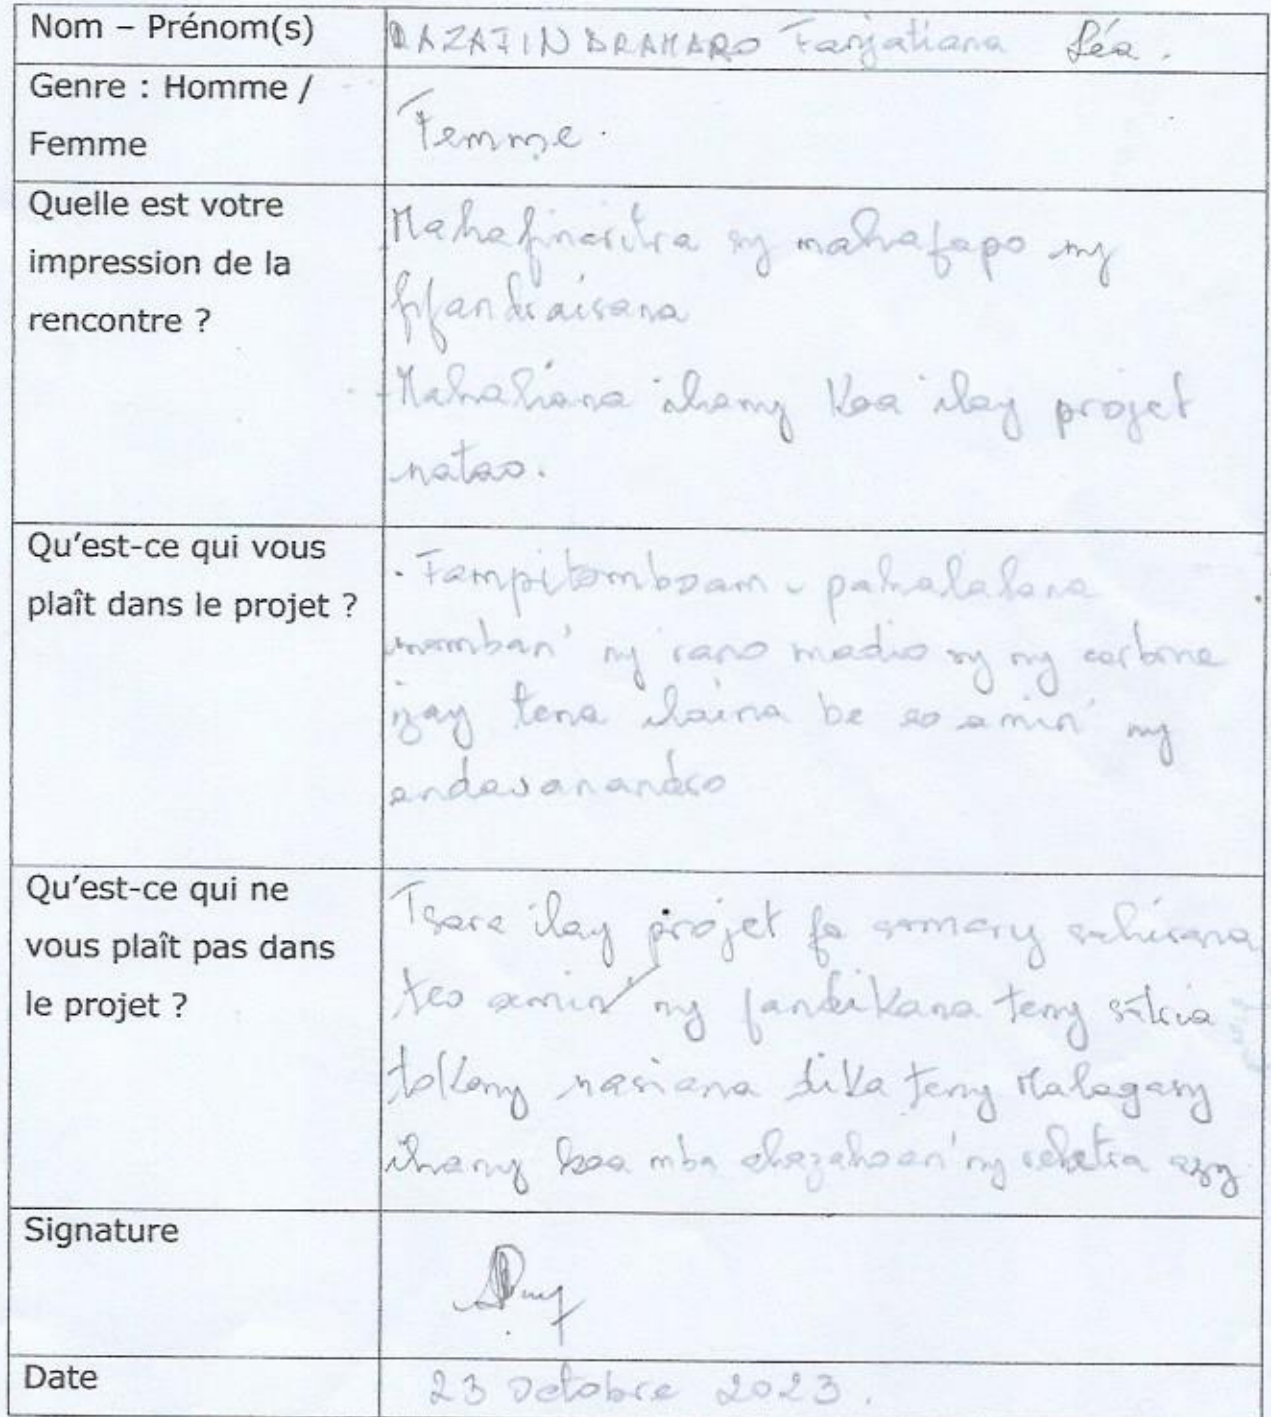 Nom – Prénom(s)
RAZAFINDRAMARO Fanjatiana Léa.
Genre : Homme /
Femme
Femme.
Quelle est votre
impression de la
rencontre ?
Mahafinaritra sy mahafapo ny
fifandraisana
Mahaliana ihany koa ilay projet
natao.
Qu'est-ce qui vous
plaît dans le projet ?
- Fampitomboam-pahalalana
momban' ny rano madio sy ny carbone
izay tena ilaina be eo amin' ny
andavanandro
Qu'est-ce qui ne
vous plaît pas dans
le projet ?
Tsara ilay projet fa somary sahirana
teo amin' ny fandikana teny satria
tokony nasiana dika teny Malagasy
ihany koa mba ahazahoan'ny rehetra azy
Signature
Date
23 Octobre 2023.